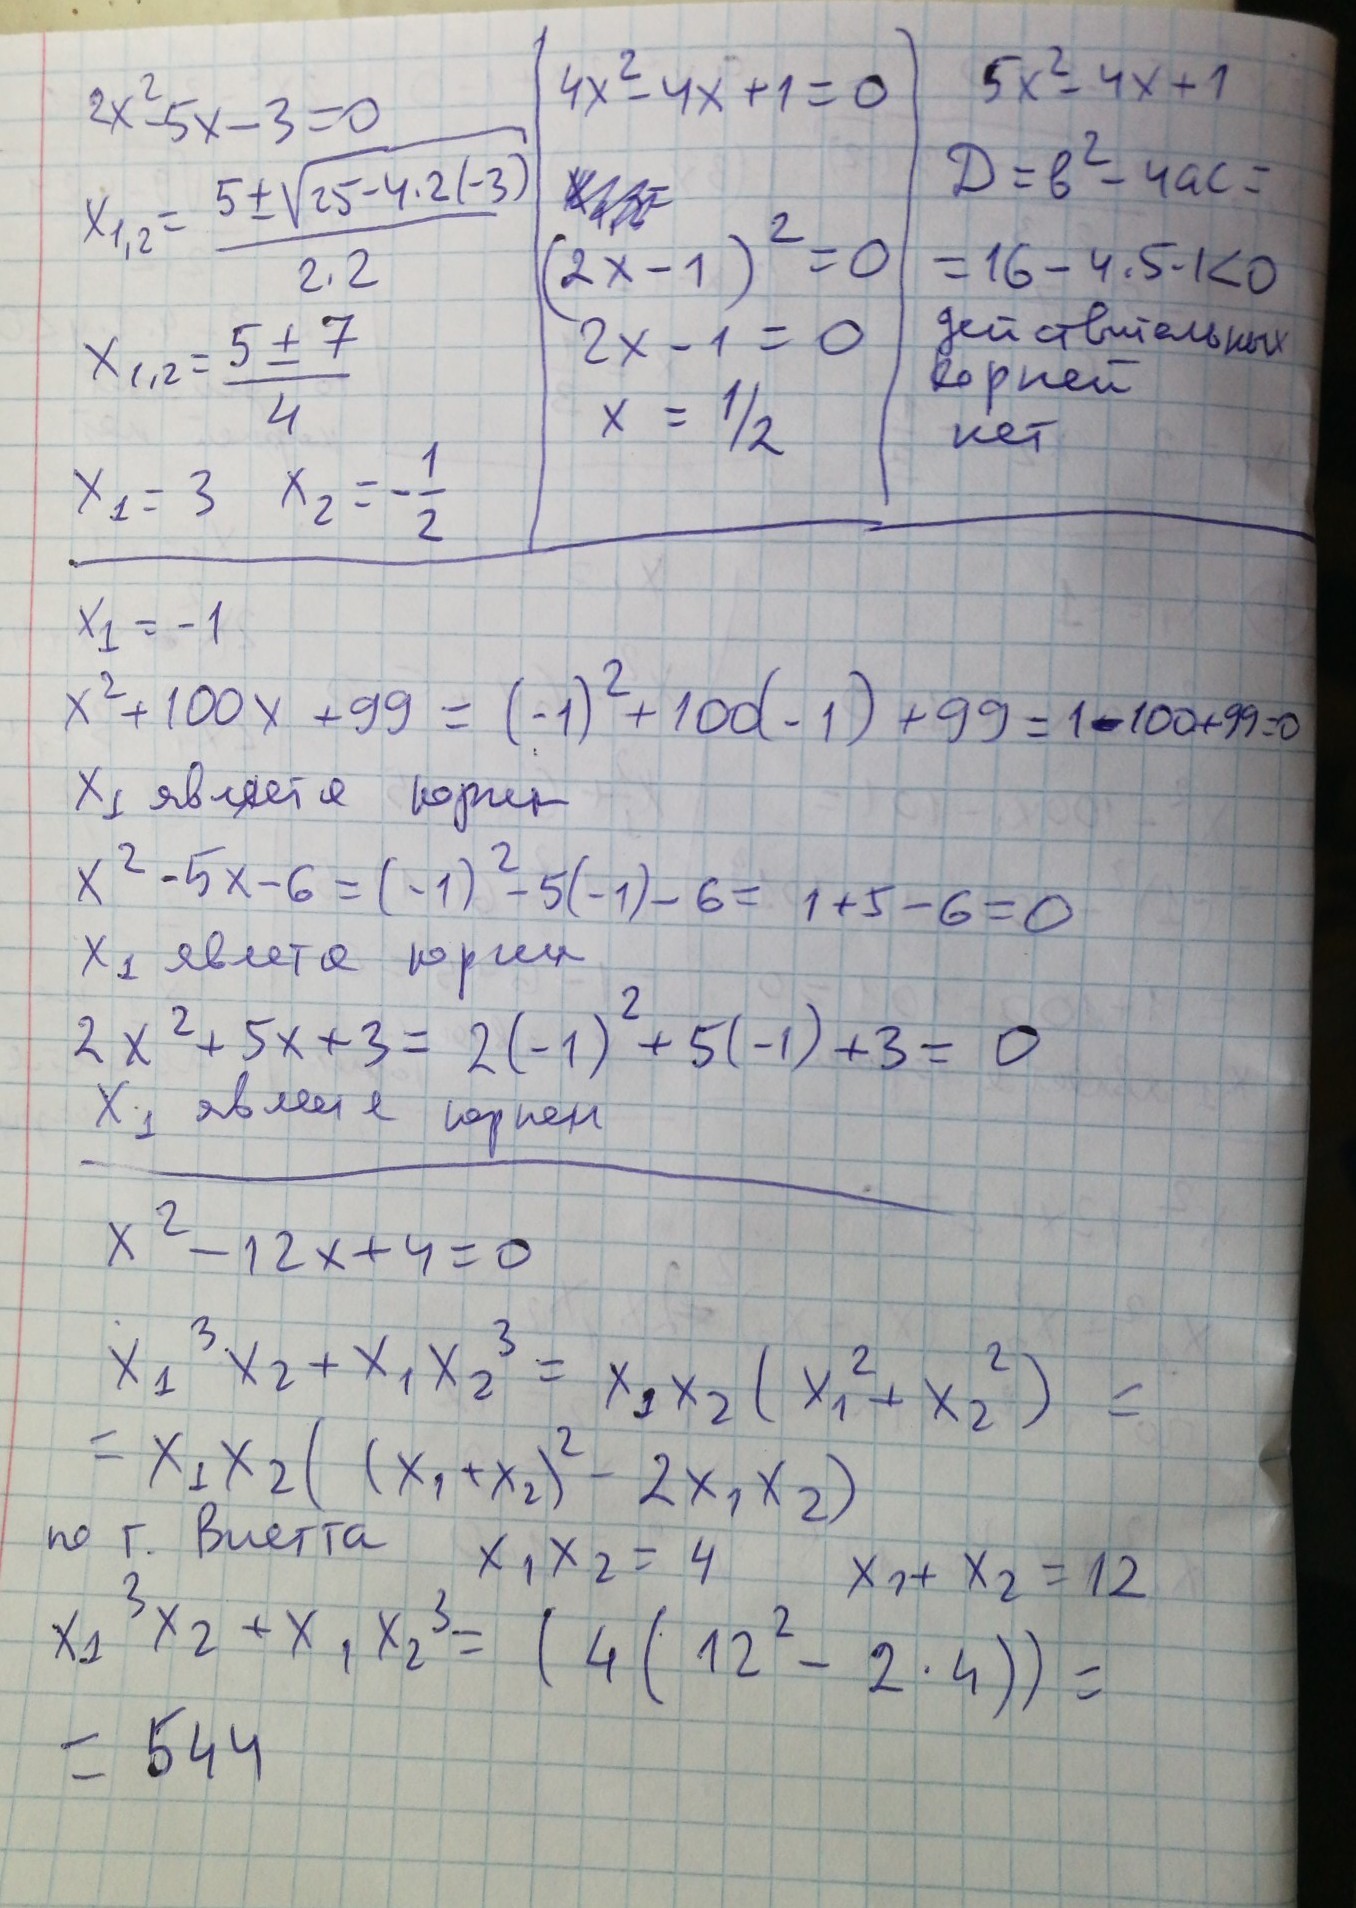 2x²-5x-3=0
x₁,₂ = (5±√(25-4·2(-3)))/(2·2)
x₁,₂ = (5±7)/4
x₁ = 3 x₂ = -1/2
4x²-4x+1=0
(2x-1)²=0
2x-1=0
x = 1/2
5x²-4x+1
D=в²-4ac=
=16-4·5·1<0
действительных
корней
нет
x₁ = -1
x²+100x+99 = (-1)²+100(-1)+99=1-100+99=0
x₁ является корнем
x²-5x-6=(-1)²-5(-1)-6= 1+5-6=0
x₁ является корнем
2x²+5x+3= 2(-1)²+5(-1)+3= 0
x₁ является корнем
x²-12x+4=0
x₁³x₂+x₁x₂³= x₁x₂(x₁²+x₂²) =
= x₁x₂((x₁+x₂)²-2x₁x₂)
по т. Виетта x₁x₂=4 x₁+x₂=12
x₁³x₂+x₁x₂³= (4(12²-2·4))=
= 544